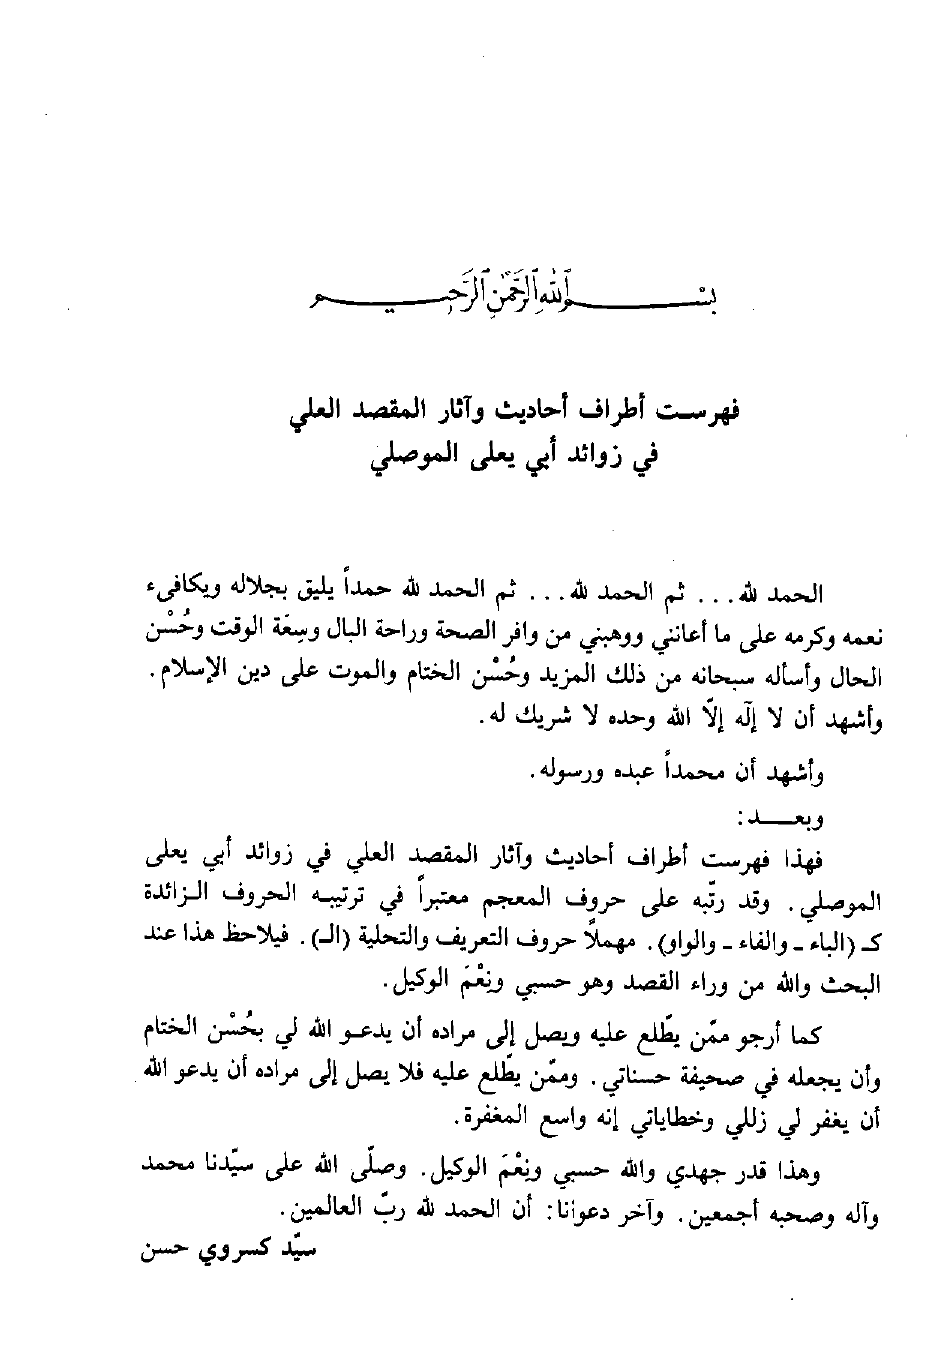 بسم الله الرحمن الرحيم
فهرست أطراف أحاديث وآثار المقصد العلي
في زوائد أبي يعلى الموصلي
الحمد لله... ثم الحمد لله... ثم الحمد لله حمداً يليق بجلاله ويكافىء
نعمه وكرمه على ما أعانني ووهبني من وافر الصحة وراحة البال وسِعَة الوقت وحُسْن
الحال وأسأله سبحانه من ذلك المزيد وحُسْن الختام والموت على دين الإسلام.
وأشهد أن لا إلٓه إلاّ الله وحده لا شريك له.
وأشهد أن محمداً عبده ورسوله.
وبعـــد:
فهذا فهرست أطراف أحاديث وآثار المقصد العلي في زوائد أبي يعلى
الموصلي. وقد رتّبه على حروف المعجم معتبراً في ترتيبه الحروف الزائدة
كـ (الباء ـ والفاء ـ والواو). مهملاً حروف التعريف والتحلية (الـ). فيلاحظ هذا عند
البحث والله من وراء القصد وهو حسبي ونِعْمَ الوكيل.
كما أرجو ممّن يطّلع عليه ويصل إلى مراده أن يدعو الله لي بحُسْن الختام
وأن يجعله في صحيفة حسناتي. وممّن يطّلع عليه فلا يصل إلى مراده أن يدعو الله
أن يغفر لي زللي وخطاياتي إنه واسع المغفرة.
وهذا قدر جهدي والله حسبي ونِعْمَ الوكيل. وصلّى الله على سيّدنا محمد
وآله وصحبه أجمعين. وآخر دعوانا: أن الحمد لله ربّ العالمين.
سيّد كسروي حسن